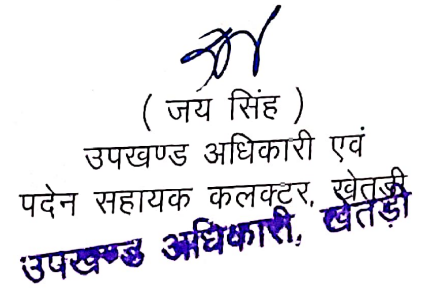 ( जय सिंह )
उपखण्ड अधिकारी एवं
पदेन सहायक कलक्टर, खेतडी
उपखण्ड अधिकारी, खेतड़ी